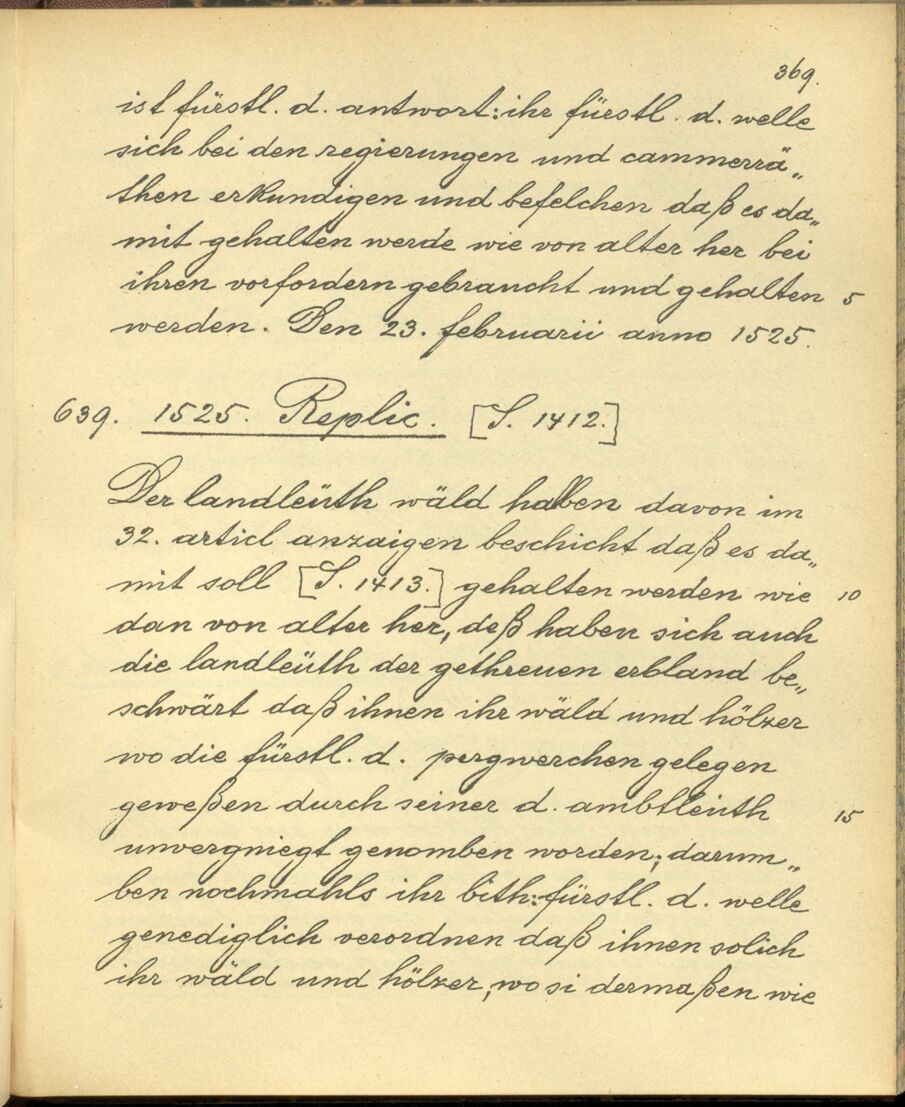 369.
ist fürstl. d. antwort: ihr fürstl. d. welle
sich bei den regierungen und cammerrä„
then erkundigen und befelchen daß es da„
mit gehalten werde wie von alter her bei
ihren vorfordern gebraucht und gehalten 5
werden. Den 23. februarii anno 1525.
639. 1525. Replic. [S. 1412.]
Der landleüth wäld haben davon im
32. articl anzaigen beschicht daß es da„
mit soll [S. 1413.] gehalten werden wie 10
dan von alter her, deß haben sich auch
die landleüth der gethreuen erbland be„
schwärt daß ihnen ihr wäld und hölzer
wo die fürstl. d. pergwerchen gelegen
geweßen durch seiner d. ambtleüth 15
unvergniegt genomben worden; darum„
ben nochmahls ihr bith: fürstl. d. welle
genediglich verordnen daß ihnen solich
ihr wäld und hölzer, wo si dermaßen wie